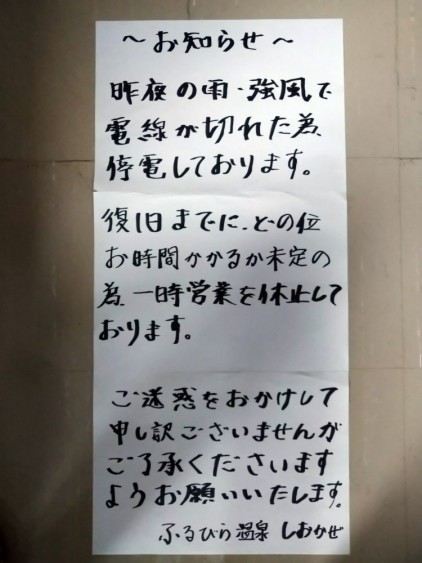 ～お知らせ～
昨夜の雨・強風で
電線が切れた為、
停電しております。
復旧までに、どの位
お時間かかるか未定の
為、一時営業を休止して
おります。
ご迷惑をおかけして
申し訳ございませんが
ご了承くださいます
ようお願いいたします。
ふるびら温泉 しおかぜ